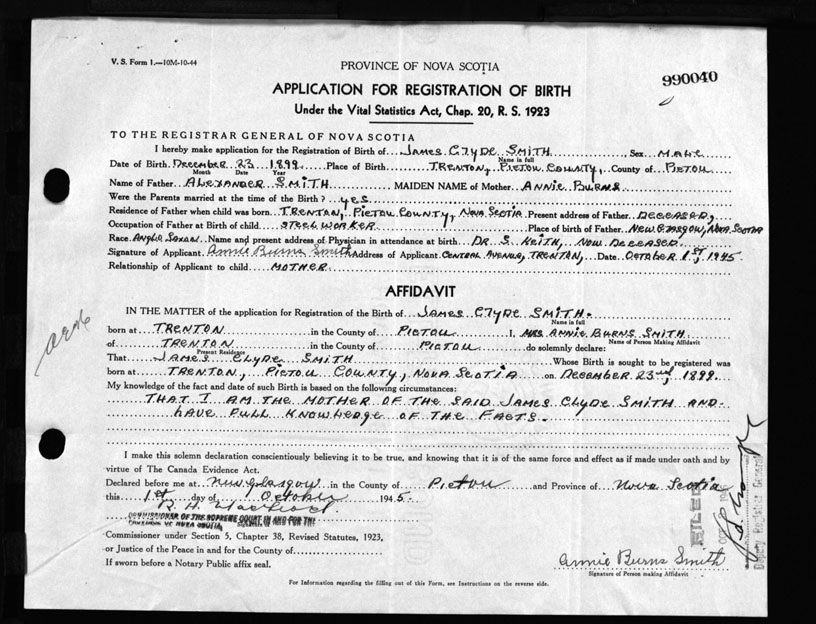 V. S. Form 1.—10M-10-44
PROVINCE OF NOVA SCOTIA
990040
APPLICATION FOR REGISTRATION OF BIRTH
Under the Vital Statistics Act, Chap. 20, R. S. 1923
TO THE REGISTRAR GENERAL OF NOVA SCOTIA
I hereby make application for the Registration of Birth of JAMES CLYDE SMITH Sex MALE
Name in full
Date of Birth DECEMBER 23 1899 Place of Birth TRENTON, PICTOU COUNTY, County of PICTOU
Month Date Year
Name of Father ALEXANDER SMITH MAIDEN NAME of Mother ANNIE BURNS
Were the Parents married at the time of the Birth? YES
Residence of Father when child was born TRENTON, PICTOU COUNTY, NOVA SCOTIA Present address of Father DECEASED,
Occupation of Father at Birth of child STEEL WORKER Place of birth of Father NEW GLASGOW, NOVA SCOTIA
Race ANGLO SAXON Name and present address of Physician in attendance at birth DR. S. KEITH, NOW DECEASED
Signature of Applicant Annie Burns Smith Address of Applicant CENTRAL AVENUE, TRENTON, Date OCTOBER 1ST, 1945
Relationship of Applicant to child MOTHER
AFFIDAVIT
IN THE MATTER of the application for Registration of the Birth of JAMES CLYDE SMITH.
Name in full
born at TRENTON in the County of PICTOU I, MRS ANNIE BURNS SMITH
Name of Person Making Affidavit
of TRENTON in the County of PICTOU do solemnly declare:
Present Residence
That JAMES CLYDE SMITH Whose Birth is sought to be registered was
born at TRENTON, PICTOU COUNTY, NOVA SCOTIA on DECEMBER 23rd, 1899.
My knowledge of the fact and date of such Birth is based on the following circumstances:
THAT I AM THE MOTHER OF THE SAID JAMES CLYDE SMITH AND
HAVE FULL KNOWLEDGE OF THE FACTS.
I make this solemn declaration conscientiously believing it to be true, and knowing that it is of the same force and effect as if made under oath and by
virtue of The Canada Evidence Act.
Declared before me at New Glasgow in the County of Pictou and Province of Nova Scotia
this 1st day of October 1945.
R. H.
COMMISSIONER OF THE SUPREME COURT IN AND FOR THE
PROVINCE OF NOVA SCOTIA
Commissioner under Section 5, Chapter 38, Revised Statutes, 1923,
or Justice of the Peace in and for the County of
If sworn before a Notary Public affix seal.
Annie Burns Smith
Signature of Person making Affidavit
For Information regarding the filling out of this Form, see Instructions on the reverse side.
FILED
Deputy Registrar General